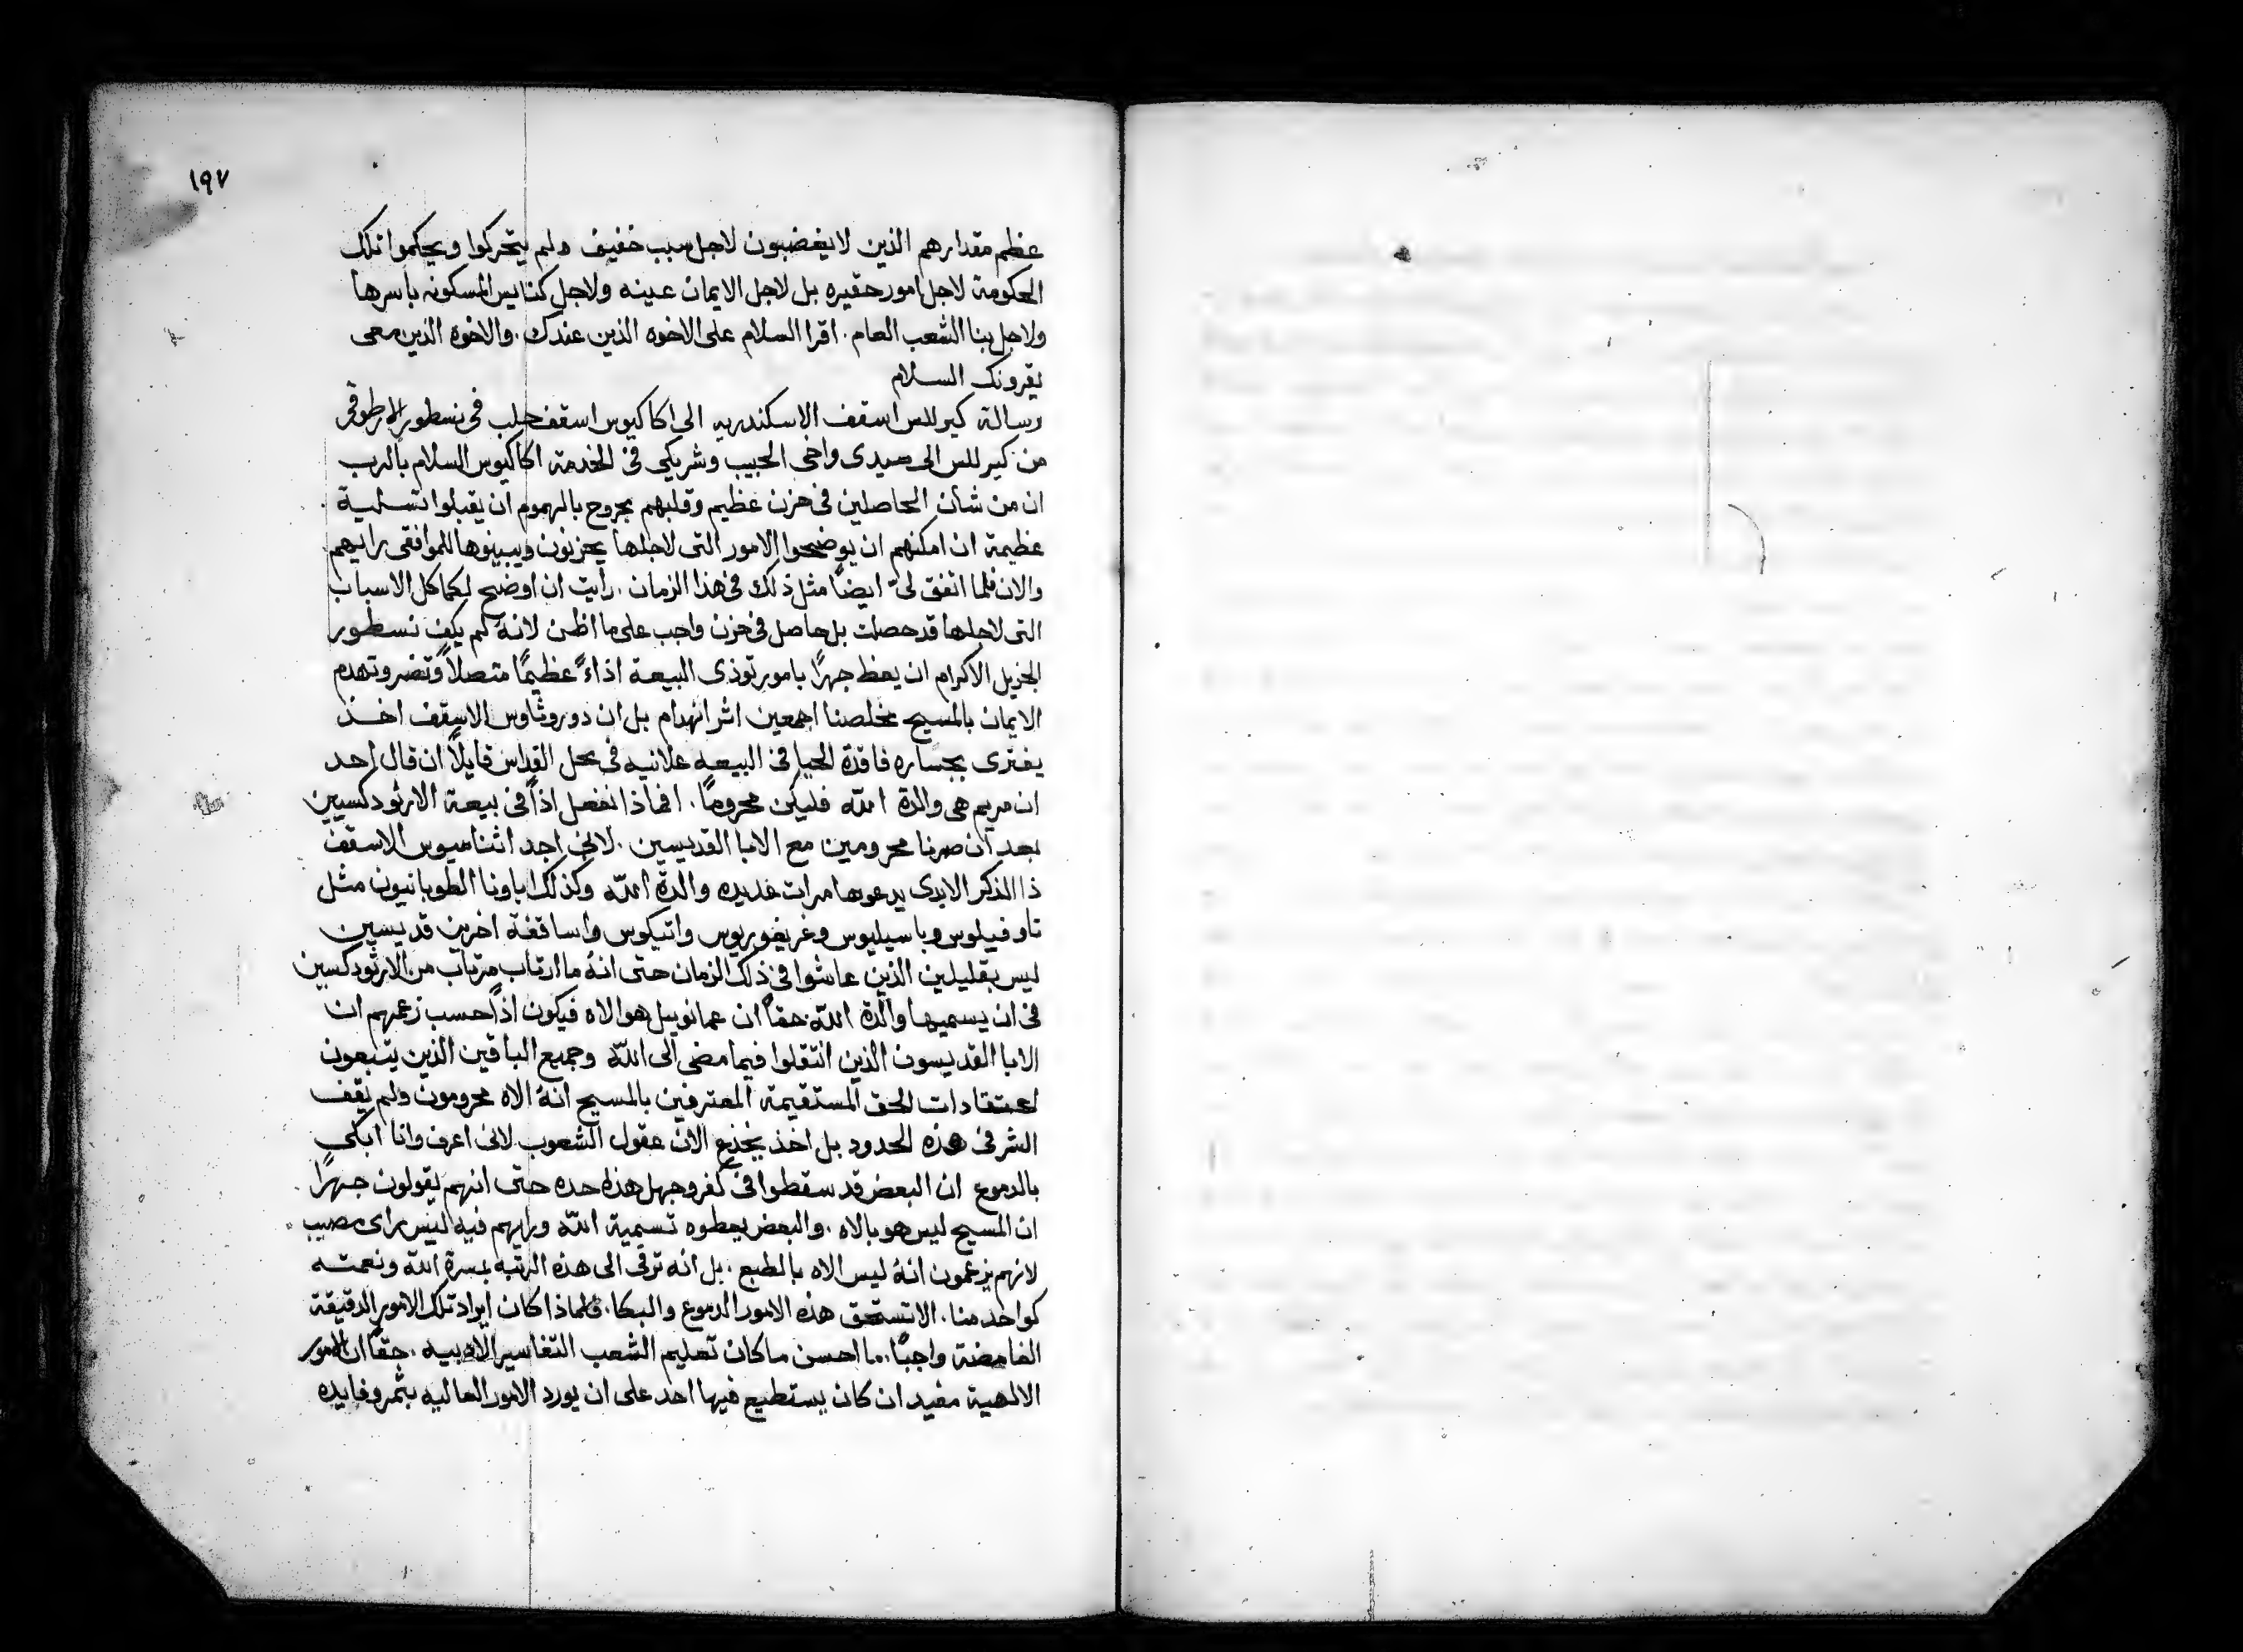 ١٩٧
عظم مقدارهم الذين لا يغضبون لاجل سبب خفيف ولم يتحركوا ويحكموا تلك
الحكومة لاجل امور حقيره بل لاجل الايمان عينه ولاجل كنايس المسكونه باسرها
ولاجل بنا الشعب العام . اقرا السلام على الاخوه الذين عندك . والاخوة الذين معى
يقرونك السلام
رسالة كيرللس اسقف الاسكندريه الى اكاكيوس اسقف حلب فى نسطور الارطوقى
من كيرللس الى سيدى واخى الحبيب وشريكى فى الخدمة اكاكيوس السلام بالرب
ان من شأن الحاصلين فى حزن عظيم وقلبهم مجروح بالهموم ان يقبلوا تسلية
عظيمة ان امكنهم ان يوضحوا الامور التى لاجلها يحزنون ويبينوها للموافقى رايهم
والان فلما اتفق لىّ ايضاً مثل ذلك فى هذا الزمان . رأيت ان اوضح لكما كل الاسباب
التى لاجلها قد حصلت بل حاصل فى حزن واجب على ما اظن لانهُ لم يكفِ نسطور
الجزيل الاكرام ان يعظ جهرًا بامور توذى البيعة اذاءً عظيمًا متصلاً وتضر وتهدم
الايمان بالمسيح مخلصنا اجمعين اشر انهدام بل ان دوروثاوس الاسقف اخذ
يفترى بجساره فاقدة الحيا فى البيعه علانيه فى محل القداس قايلاً ان قال احد
ان مريم هى والدة الله فليكن محرومًا . افماذا نفعل اذاً فى بيعة الارثودكسيين
بعد ان صرنا محرومين مع الابا القديسين . لانى اجد اثناسيوس الاسقف
ذا الذكر الابدى يدعوها مرات عديده والدة الله وكذلك اباونا الطوبانيون مثل
تاوفيلوس وباسيليوس وغريغوريوس واتيكوس واساقفة اخرين قديسين
ليس بقليلين الذين عاشوا فى ذلك الزمان حتى انهُ ما ارتاب مرتاب من الارثودكسين
فى ان يسميها والدة الله حقاً ان عمانوييل هو الاه فيكون اذاً حسب زعمهم ان
الابا القديسون الذين انتقلوا فيما مضى الى الله وجميع الباقين الذين يتبعون
اعتقادات الحق المستقيمة المعترفين بالمسيح انهُ الاه محرومون ولم يقف
الشر فى هذه الحدود بل اخذ يخدع الان عقول الشعوب لانى اعرف وانا ابكى
بالدموع ان البعض قد سقطوا فى كفر وجهل هذا حده حتى انهم يقولون جهرًا
ان المسيح ليس هو بالاه . والبعض يعطوه تسمية الله ورايهم فيه ليس براى مصيب
لانهم يزعمون انهُ ليس الاه بالطبع . بل انه ترقى الى هذه الرتبه بمسرة الله ونعمته
كواحد منا . الا تستحق هذه الامور الدموع والبكا . فلماذا كان ايراد تلك الامور الدقيقة
الغامضة واجبًا . ما احسن ما كان تعليم الشعب التفاسير الادبيه . حقاً ان الامور
الالهية مفيد ان كان يستطيع فيها احد على ان يورد الامور العاليه بثمر وفايده